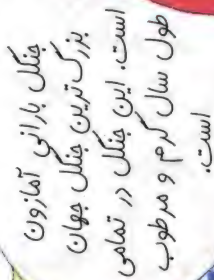 جنگل بارانی آمازون
بزرگ‌ترین جنگل جهان
است. این جنگل در تمامی
طول سال گرم و مرطوب
است.